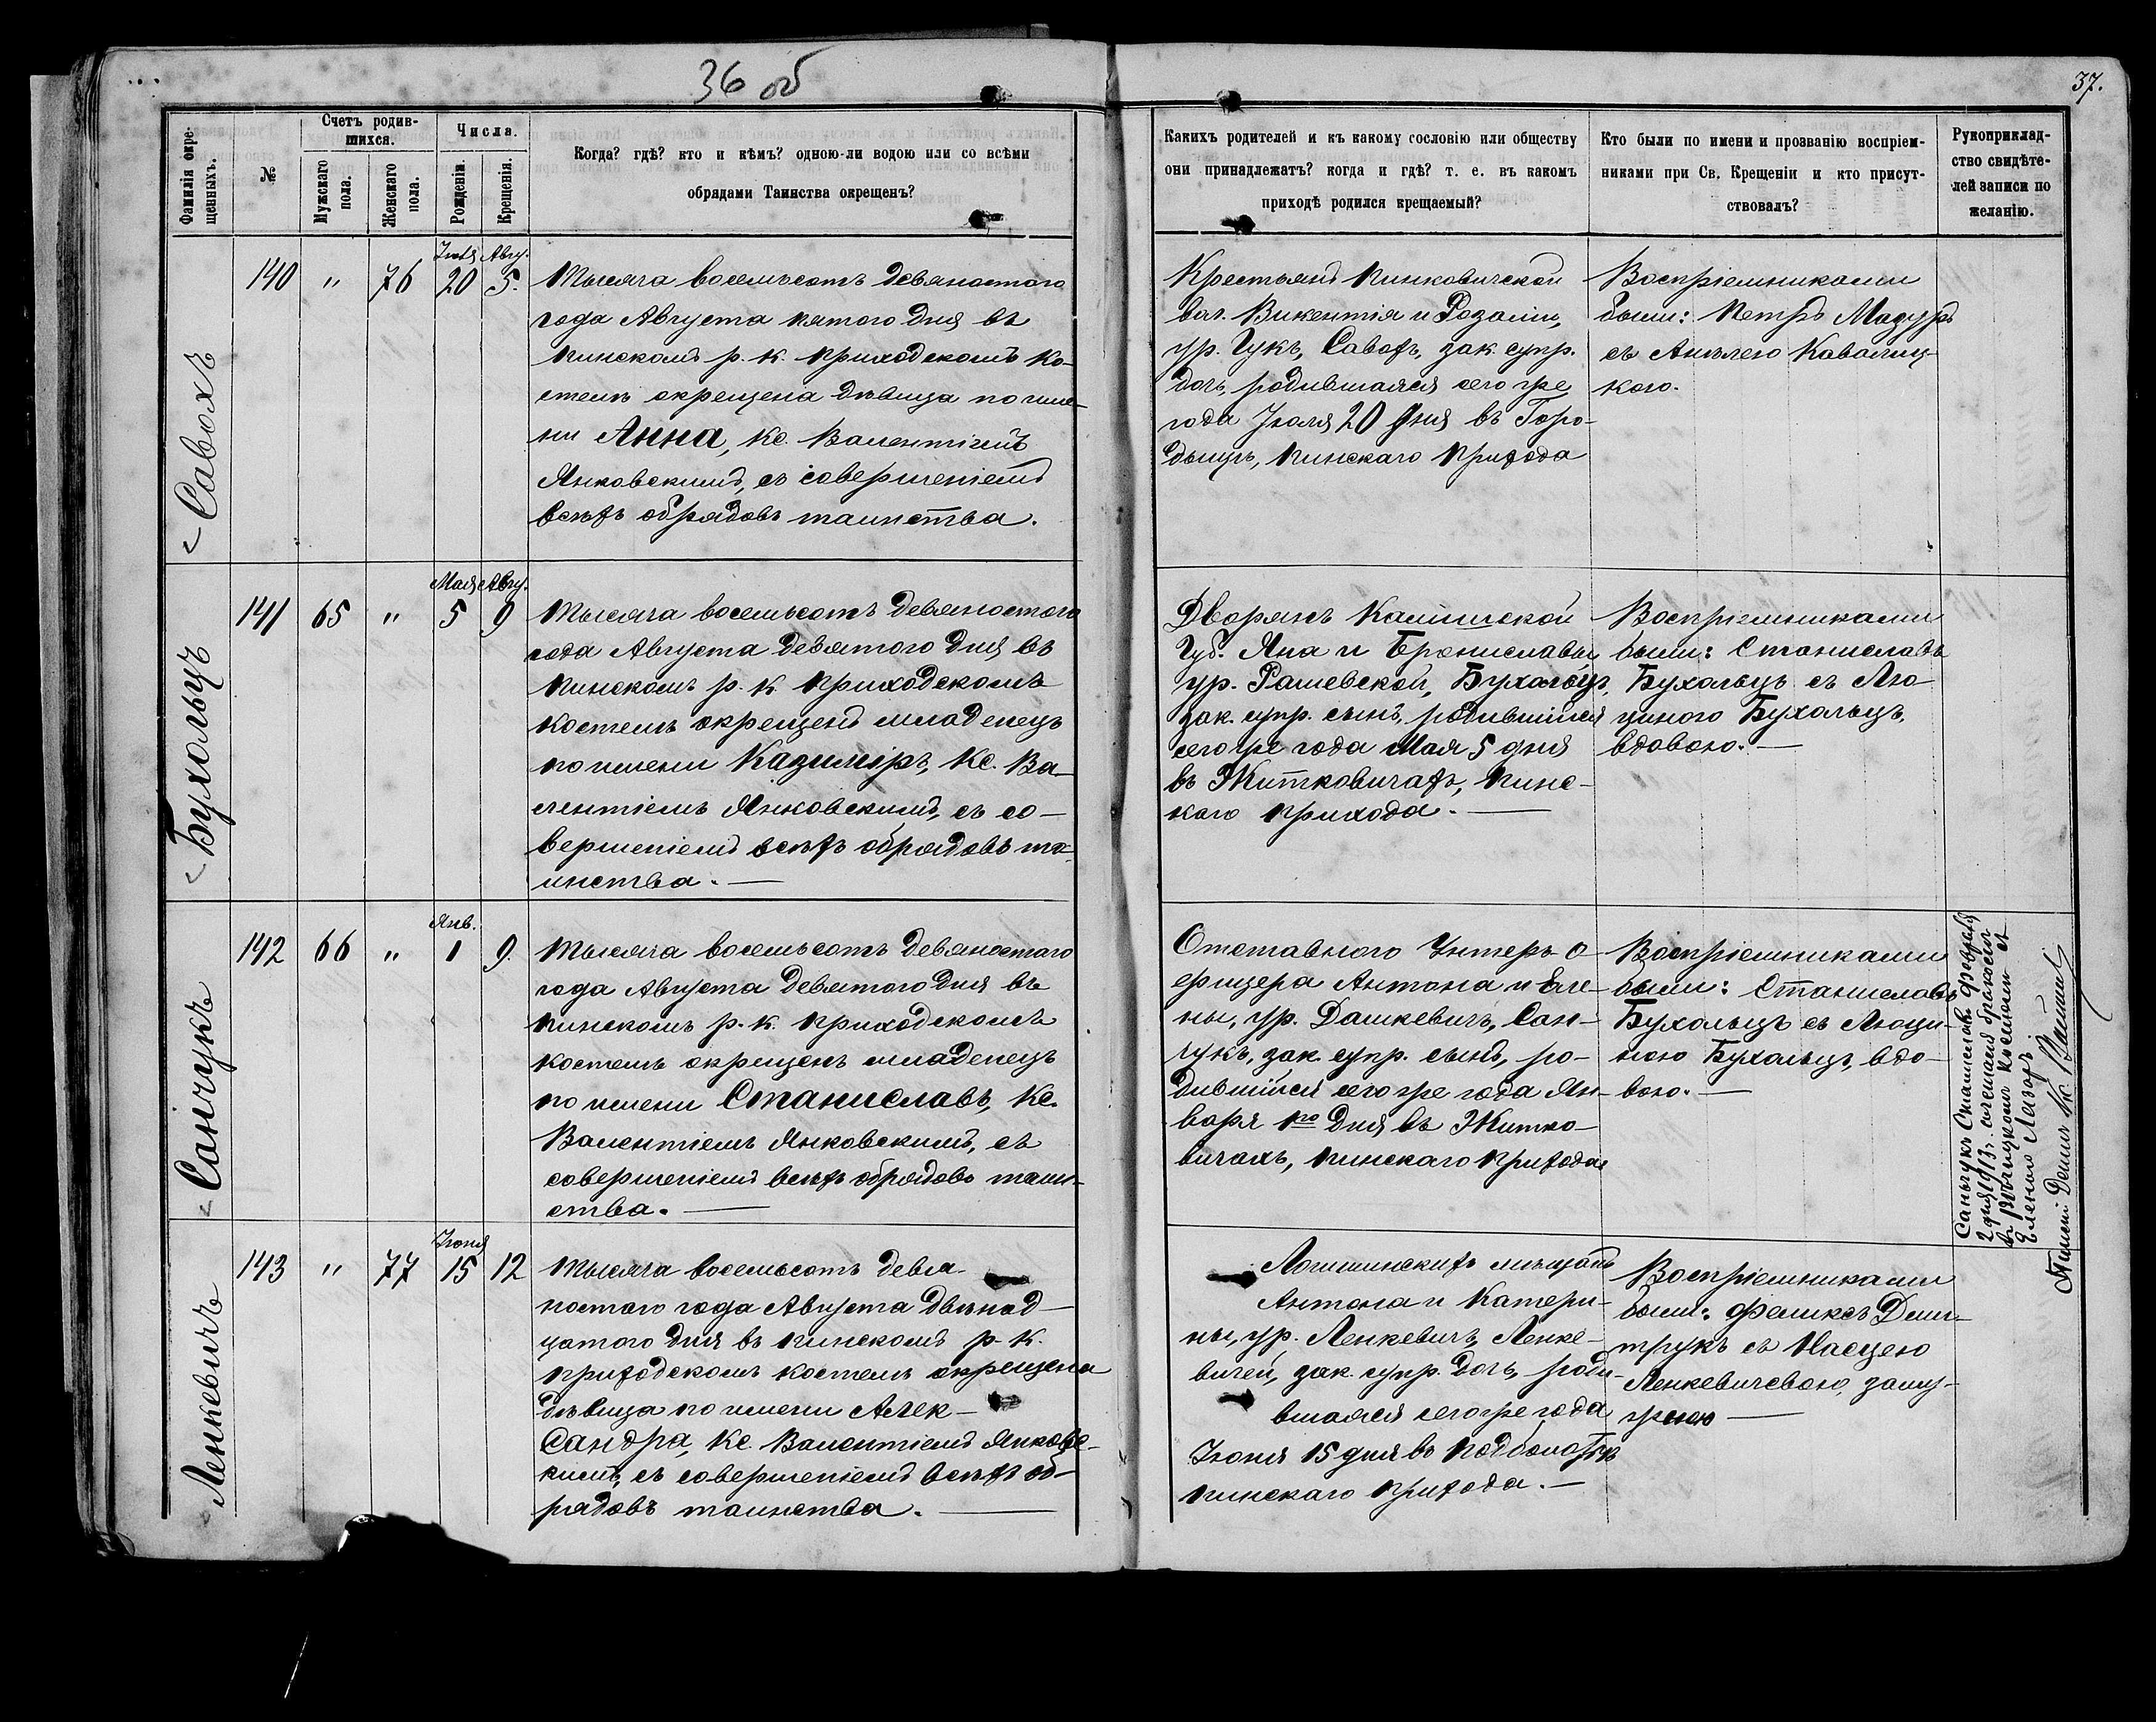 36 об
37.
Фамилія окрещенныхъ.
№
Счетъ родившихся.
Мужскаго пола.
Женскаго пола.
Числа.
Рожденія.
Крещенія.
Когда? гдѣ? кто и кѣмъ? одною-ли водою или со всѣми
обрядами Таинства окрещенъ?
Каких родителей и къ какому сословію или обществу
они принадлежатъ? когда и гдѣ? т. е. въ какомъ
приходѣ родился крещаемый?
Кто были по имени и прозванію воспріем-
никами при Св. Крещеніи и кто присут-
ствовалъ?
Рукоприклад-
ство свидѣте-
лей записи по
желанію.
Савохъ
140 " 76 Іюля 20 Авгу. 5.
Тысяча восемьсотъ девяностого
года Августа пятого дня въ
Пинскомъ р. к. приходскомъ ко-
стелѣ окрещена дѣвица по име-
ни Анна, Кс. Валентіемъ
Янковскимъ, съ совершеніемъ
всѣхъ обрядовъ таинства.
Крестьянъ Пинковичской
вол. Викентія и Розаліи,
ур. Гукъ, Савохъ, зак. супр.
дочь, родившаяся сего же
года Іюля 20 дня въ Горо-
дыщѣ, Пинскаго прихода
Воспріемниками
были: Петръ Мазуръ
съ Анѣлею Кавалиц-
кою.
Бухольцъ
141 65 " Мая 5 Авгу. 9
Тысяча восемьсотъ девяностого
года Августа девятого дня въ
Пинскомъ р. к. приходскомъ
костелѣ окрещенъ младенецъ
по имени Казиміръ, Кс. Ва-
лентіемъ Янковскимъ, съ со-
вершеніемъ всѣхъ обрядовъ та-
инства.
Дворянъ Калишской
Губ. Яна и Брониславы
ур. Рашевской, Бухольцъ,
зак. супр. сынъ, родившійся
сего же года Мая 5 дня
въ Житковичахъ, Пинс-
каго прихода.
Воспріемниками
были: Станиславъ
Бухольцъ съ Лю-
циною Бухольцъ,
вдовою.
Санчукъ
142 66 " Янв. 1 9.
Тысяча восемьсотъ девяностаго
года Августа девятого дня въ
Пинскомъ р. к. приходскомъ
костелѣ окрещенъ младенецъ
по имени Станиславъ, Кс.
Валентіемъ Янковскимъ, съ
совершеніемъ всѣхъ обрядовъ таин-
ства.
Отставного Унтеръ О-
фицера Антона и Еле-
ны, ур. Дашкевичъ, Сан-
чукъ, зак. супр. сынъ, ро-
дившійся сего же года Ян-
варя 1го дня въ Житко-
вичахъ, Пинскаго прихода
Воспріемниками
были: Станиславъ
Бухольцъ съ Люци-
ною Бухольцъ, вдо-
вою.
Саньчукъ Станислав. февраля
2 дня 1913 г. сочетался бракомъ
костелѣ съ
Еленою Лазаръ.
Ленкевичъ
143 " 77 Іюня 15 12
Тысяча восемьсотъ девя-
ностого года Августа двѣнад-
цатого дня въ Пинскомъ р. к.
приходскомъ костелѣ окрещена
дѣвица по имени Алек-
сандра, Кс. Валентіемъ Янковс-
кимъ, съ совершеніемъ всѣхъ об-
рядовъ таинства.
Логишинскихъ мѣщанъ
Антона и Катери-
ны, ур. Ленкевичъ, Ленке-
вичей, зак. супр. дочь, роди-
вшаяся сего же года
Іюня 15 дня въ
Пинскаго прихода.
Воспріемниками
были: Феликсъ Дми-
трукъ съ Насцею
Ленкевичевою, заму-
жнею